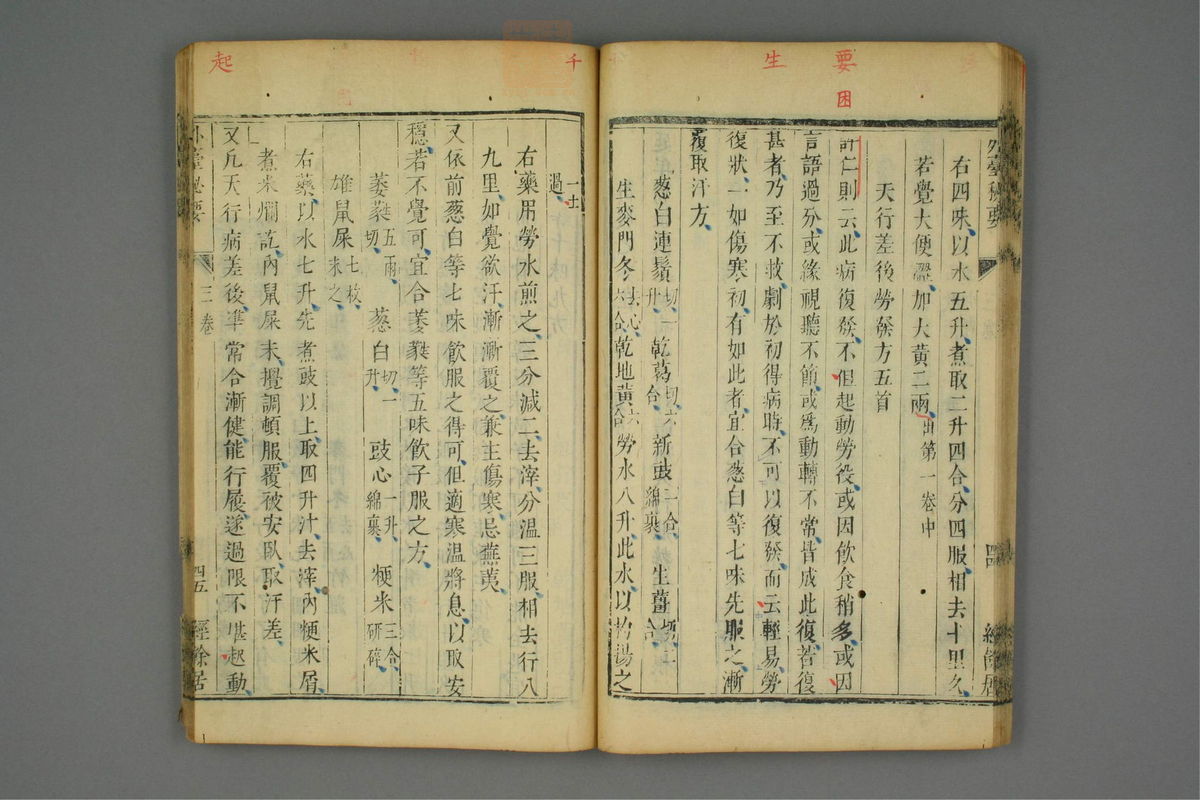 要 困
生
外臺秘要
四四
經餘居
右四味以水五升煮取二升四合分四服相去十里久
若覺大便澀加大黃二兩出第一卷中
天行差後勞發方五首
許仁則云此病復發不但起動勞役或因飲食稍多或因
言語過分或緣視聽不節或爲動轉不常皆成此復若復
甚者乃至不救劇於初得病時不可以復發而云輕易勞
復狀一如傷寒初有如此者宜合葱白等七味先服之漸
覆取汗方
葱白連鬚切一升 乾葛切六合 新豉一合綿裹 生薑切二合
生麥門冬去心六合 乾地黃六合 勞水八升此水以杓揚之
千
起
一千過
右藥用勞水煎之三分減二去滓分溫三服相去行八
九里如覺欲汗漸漸覆之兼主傷寒忌蕪荑
又依前葱白等七味飲服之得可但適寒溫將息以取安
穩若不覺可宜合葳蕤等五味飲子服之方
萎蕤五兩切 葱白切一升 豉心一升綿裹 粳米三合研碎
雄鼠屎七枚末之
右藥以水七升先煮豉以上取四升汁去滓內粳米屑
煮米爛訖內鼠屎末攪調頓服覆被安臥取汗差
又凡天行病差後準常合漸健能行履遂過限不堪起動
外臺祕要
三卷
四五
經餘居